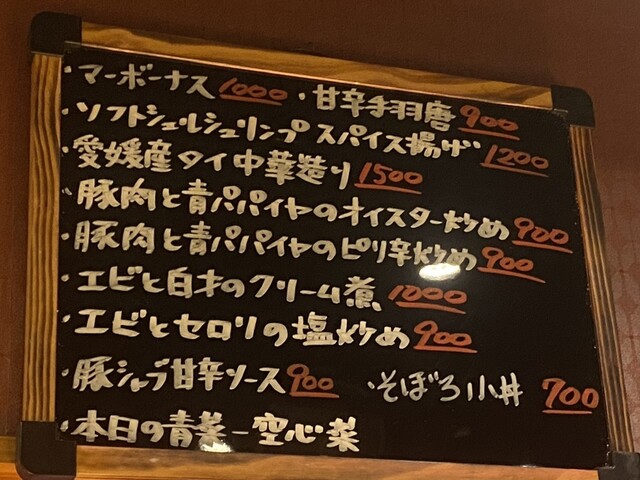 ・マーボーナス 1000 ・甘辛手羽唐 900
・ソフトシェルシュリンプスパイス揚げ 1200
・愛媛産タイ中華造り 1500
・豚肉と青パパイヤのオイスター炒め 900
・豚肉と青パパイヤのピリ辛炒め 900
・エビと白才のクリーム煮 1000
・エビとセロリの塩炒め 900
・豚シャブ甘辛ソース 900 ・そぼろ小丼 700
・本日の青菜-空心菜